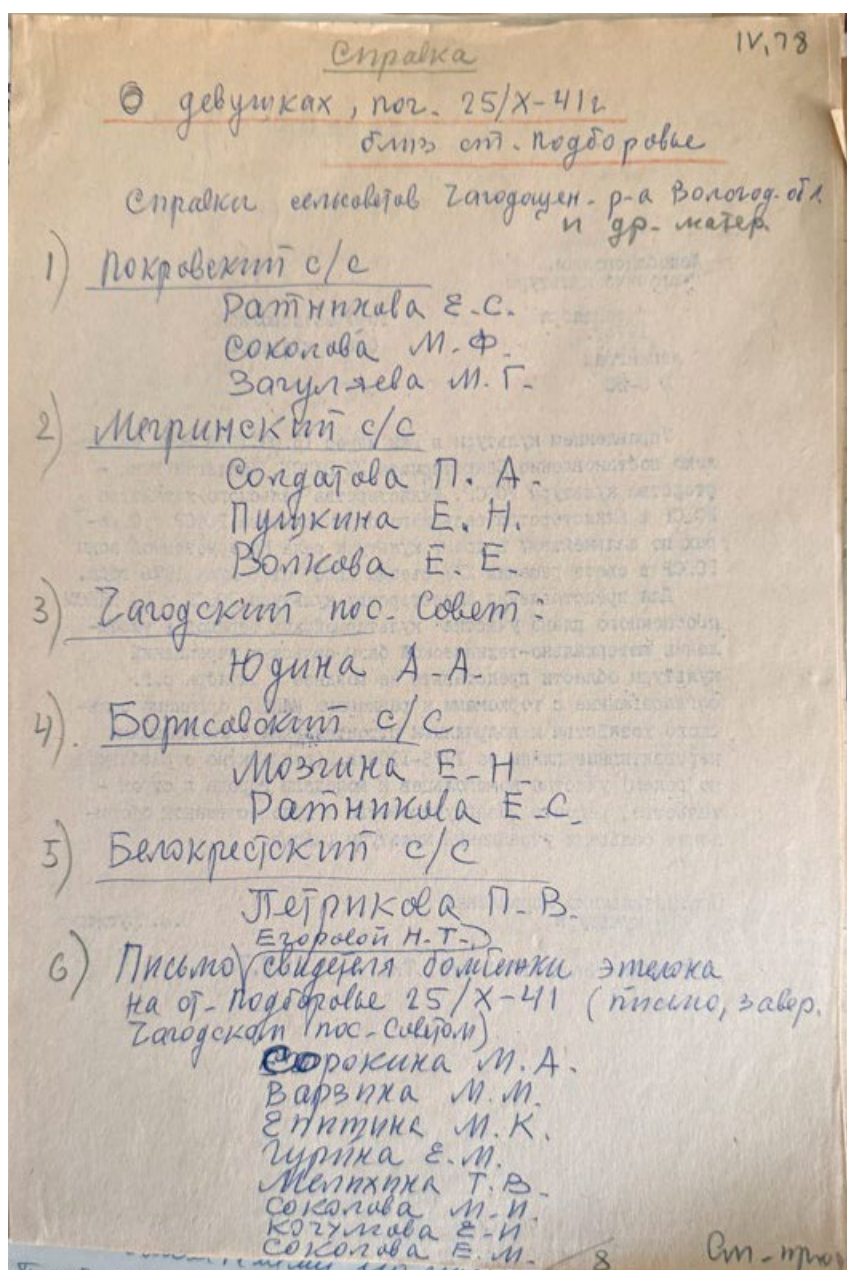 IV,78
Справка
О девушках, пог. 25/X-41г.
близ ст. Подборовье
Справки сельсоветов Чагодощен. р-а Вологод. обл.
и др. матер.
1) Покровский с/с
Ратникова Е.С.
Соколова М.Ф.
Загуляева М.Г.
2) Мегринский с/с
Солдатова П. А.
Пушкина Е. Н.
Волкова Е. Е.
3) Чагодский пос. Совет:
Юдина А А.
4). Борисовский с/с
Мозгина Е-Н.
Ратникова Е-С.
5) Белокрестский с/с
Петрикова П-В.
Егоровой Н-Т.,
6) Письмо свидетеля бомбежки эшелона
на ст. Подборовье 25/X-41 (письмо, завер.
Чагодским пос-советом)
Сорокина М.А.
Варзина М.М.
Епитина М.К.
Гурина Е.М.
Мелихина Т.В.
Соколова М-И.
Кочумова Е-И
Соколова Е.М.
8
См-